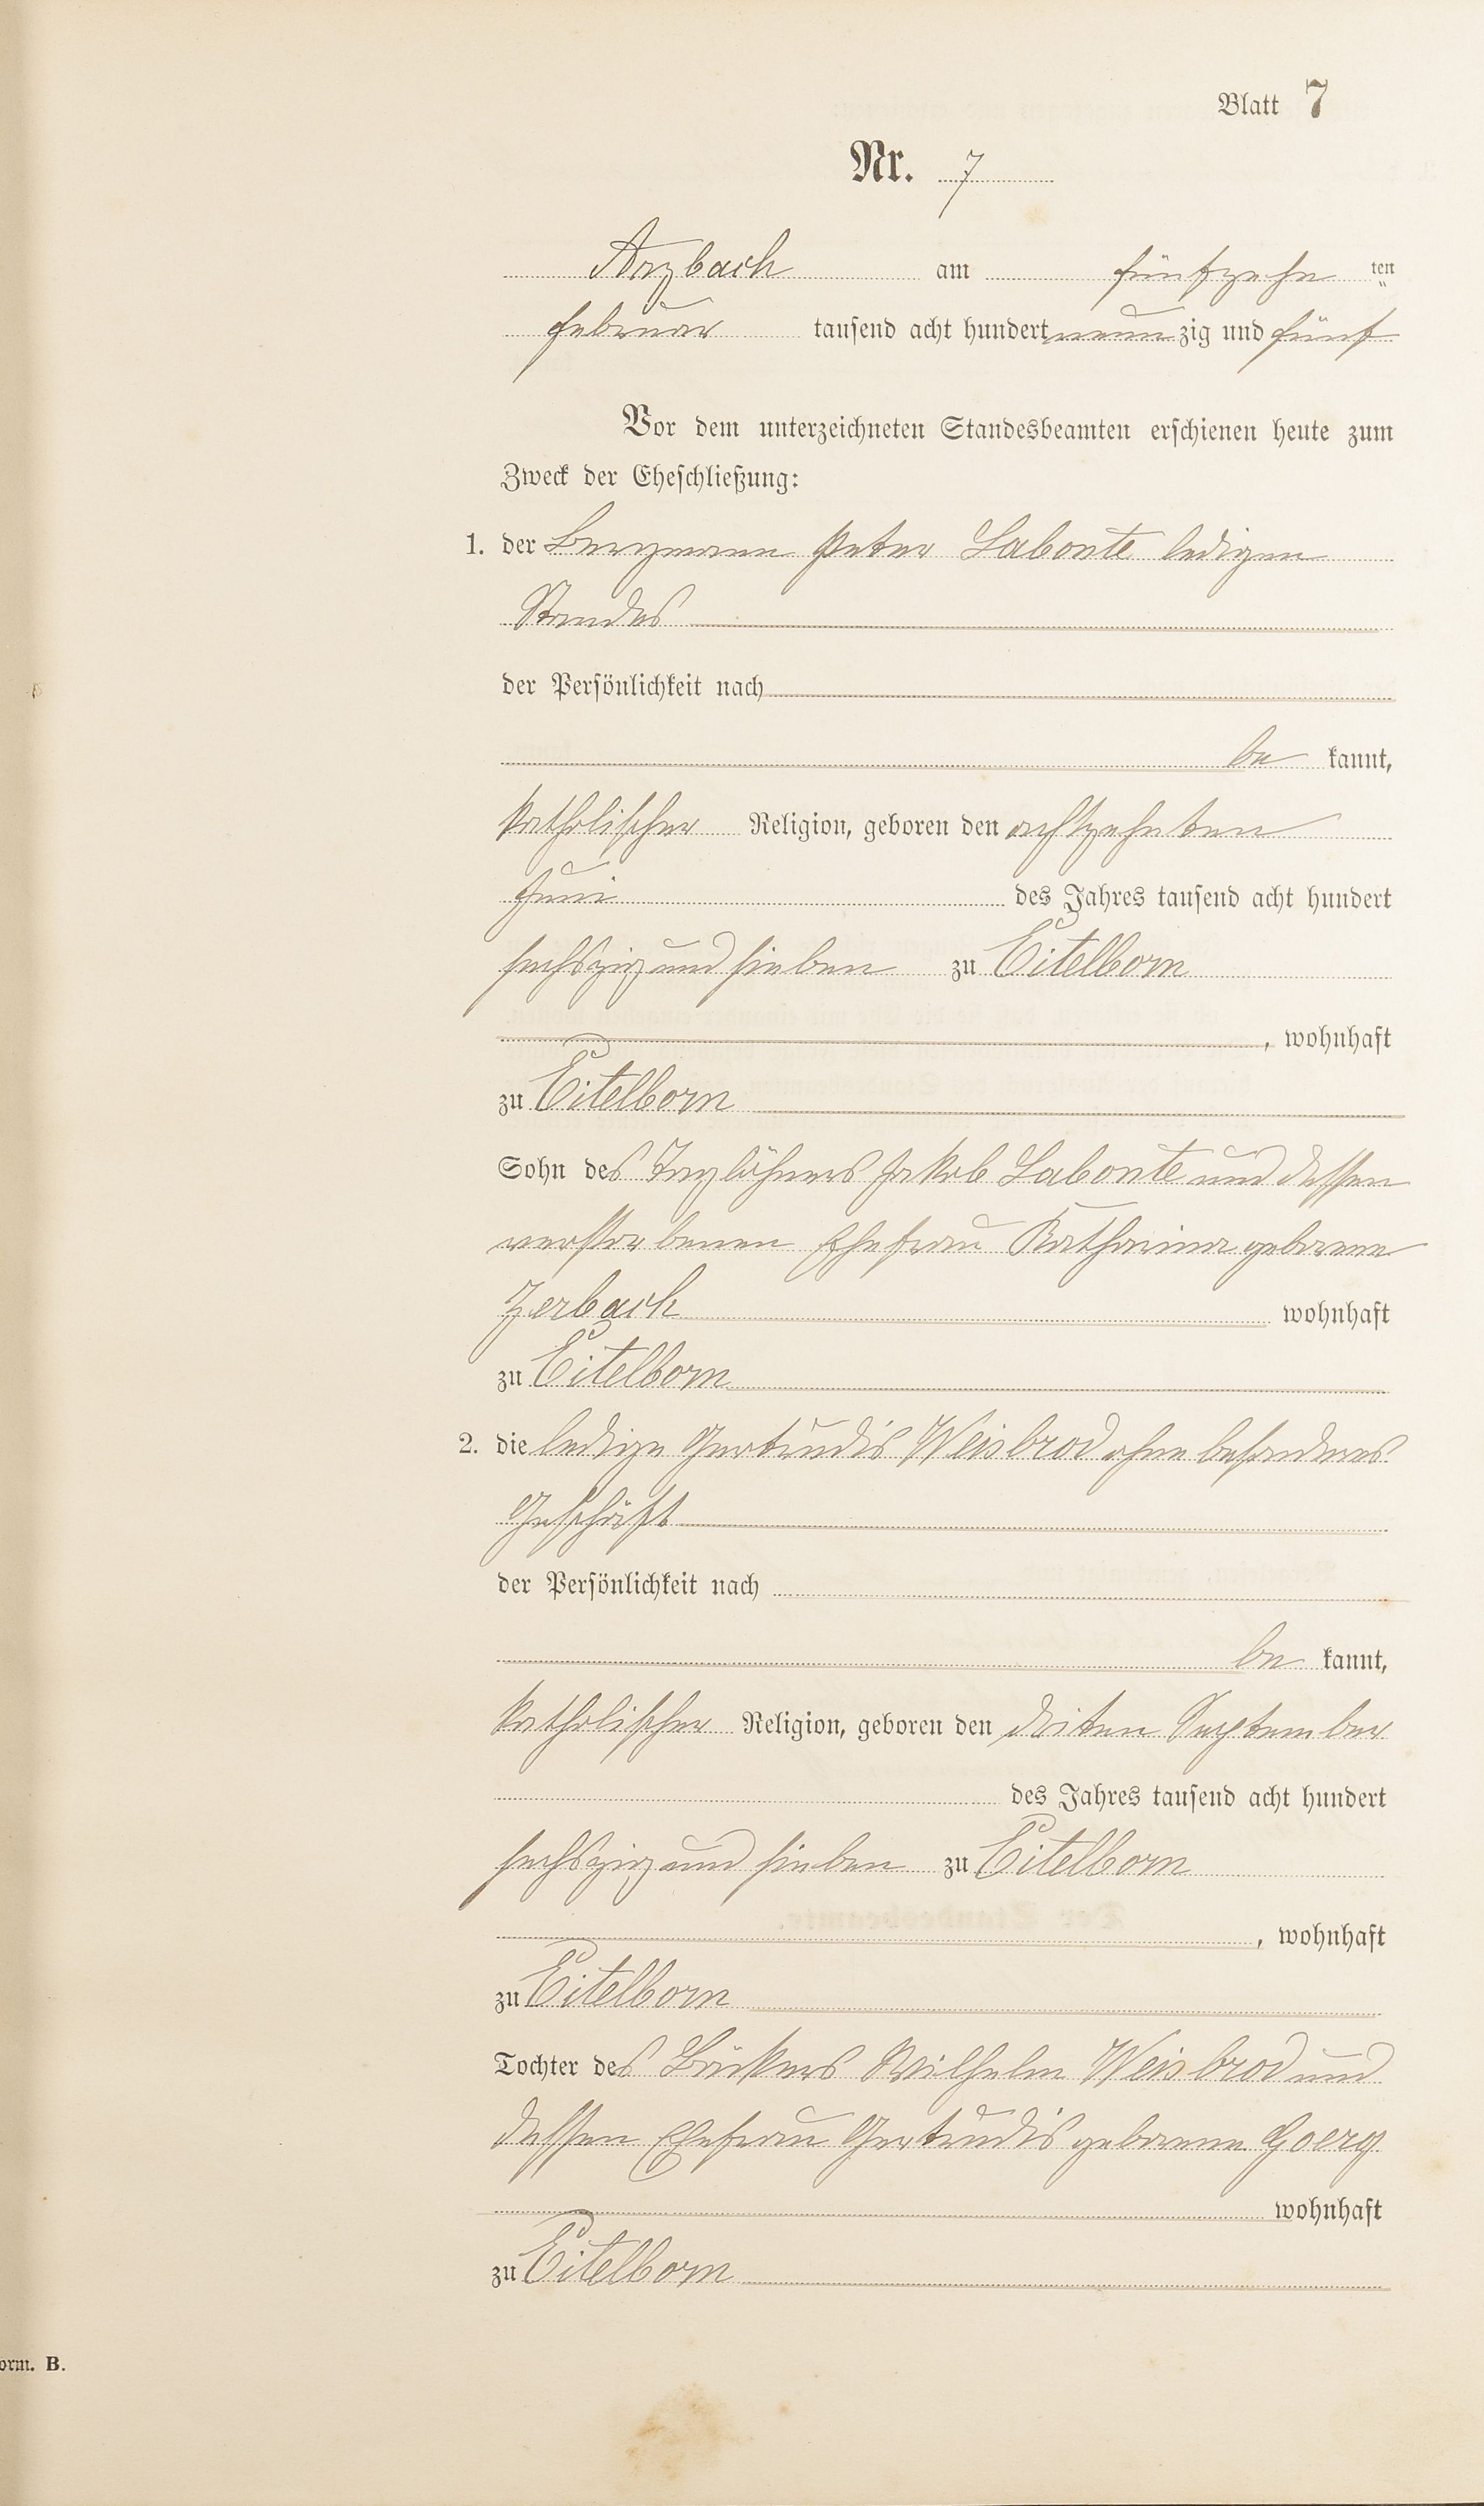 Blatt 7
Nr. 7
Arzbach am fünfzehn ten
Februar tausend acht hundert neunzig und fünf
Vor dem unterzeichneten Standesbeamten erschienen heute zum
Zweck der Eheschließung:
1. der Bergmann Peter Labonte ledigen
Standes
der Persönlichkeit nach
be kannt,
katholischer Religion, geboren den achtzehnten
Juni des Jahres tausend acht hundert
sechszig und sieben zu Eitelborn
, wohnhaft
zu Eitelborn
Sohn des Taglöhners Jakob Labonte und dessen
verstorbenen Ehefrau Katharina geborene
Zerbach wohnhaft
zu Eitelborn
2. die ledige Gertrudis Weisbrod ohne besonderes
Geschäft
der Persönlichkeit nach
be kannt,
katholischer Religion, geboren den driten September
des Jahres tausend acht hundert
sechszig und sieben zu Eitelborn
, wohnhaft
zu Eitelborn
Tochter des Bäckers Wilhelm Weisbrod und
dessen Ehefrau Gertrudis geborene Goerg
wohnhaft
zu Eitelborn
orm. B.